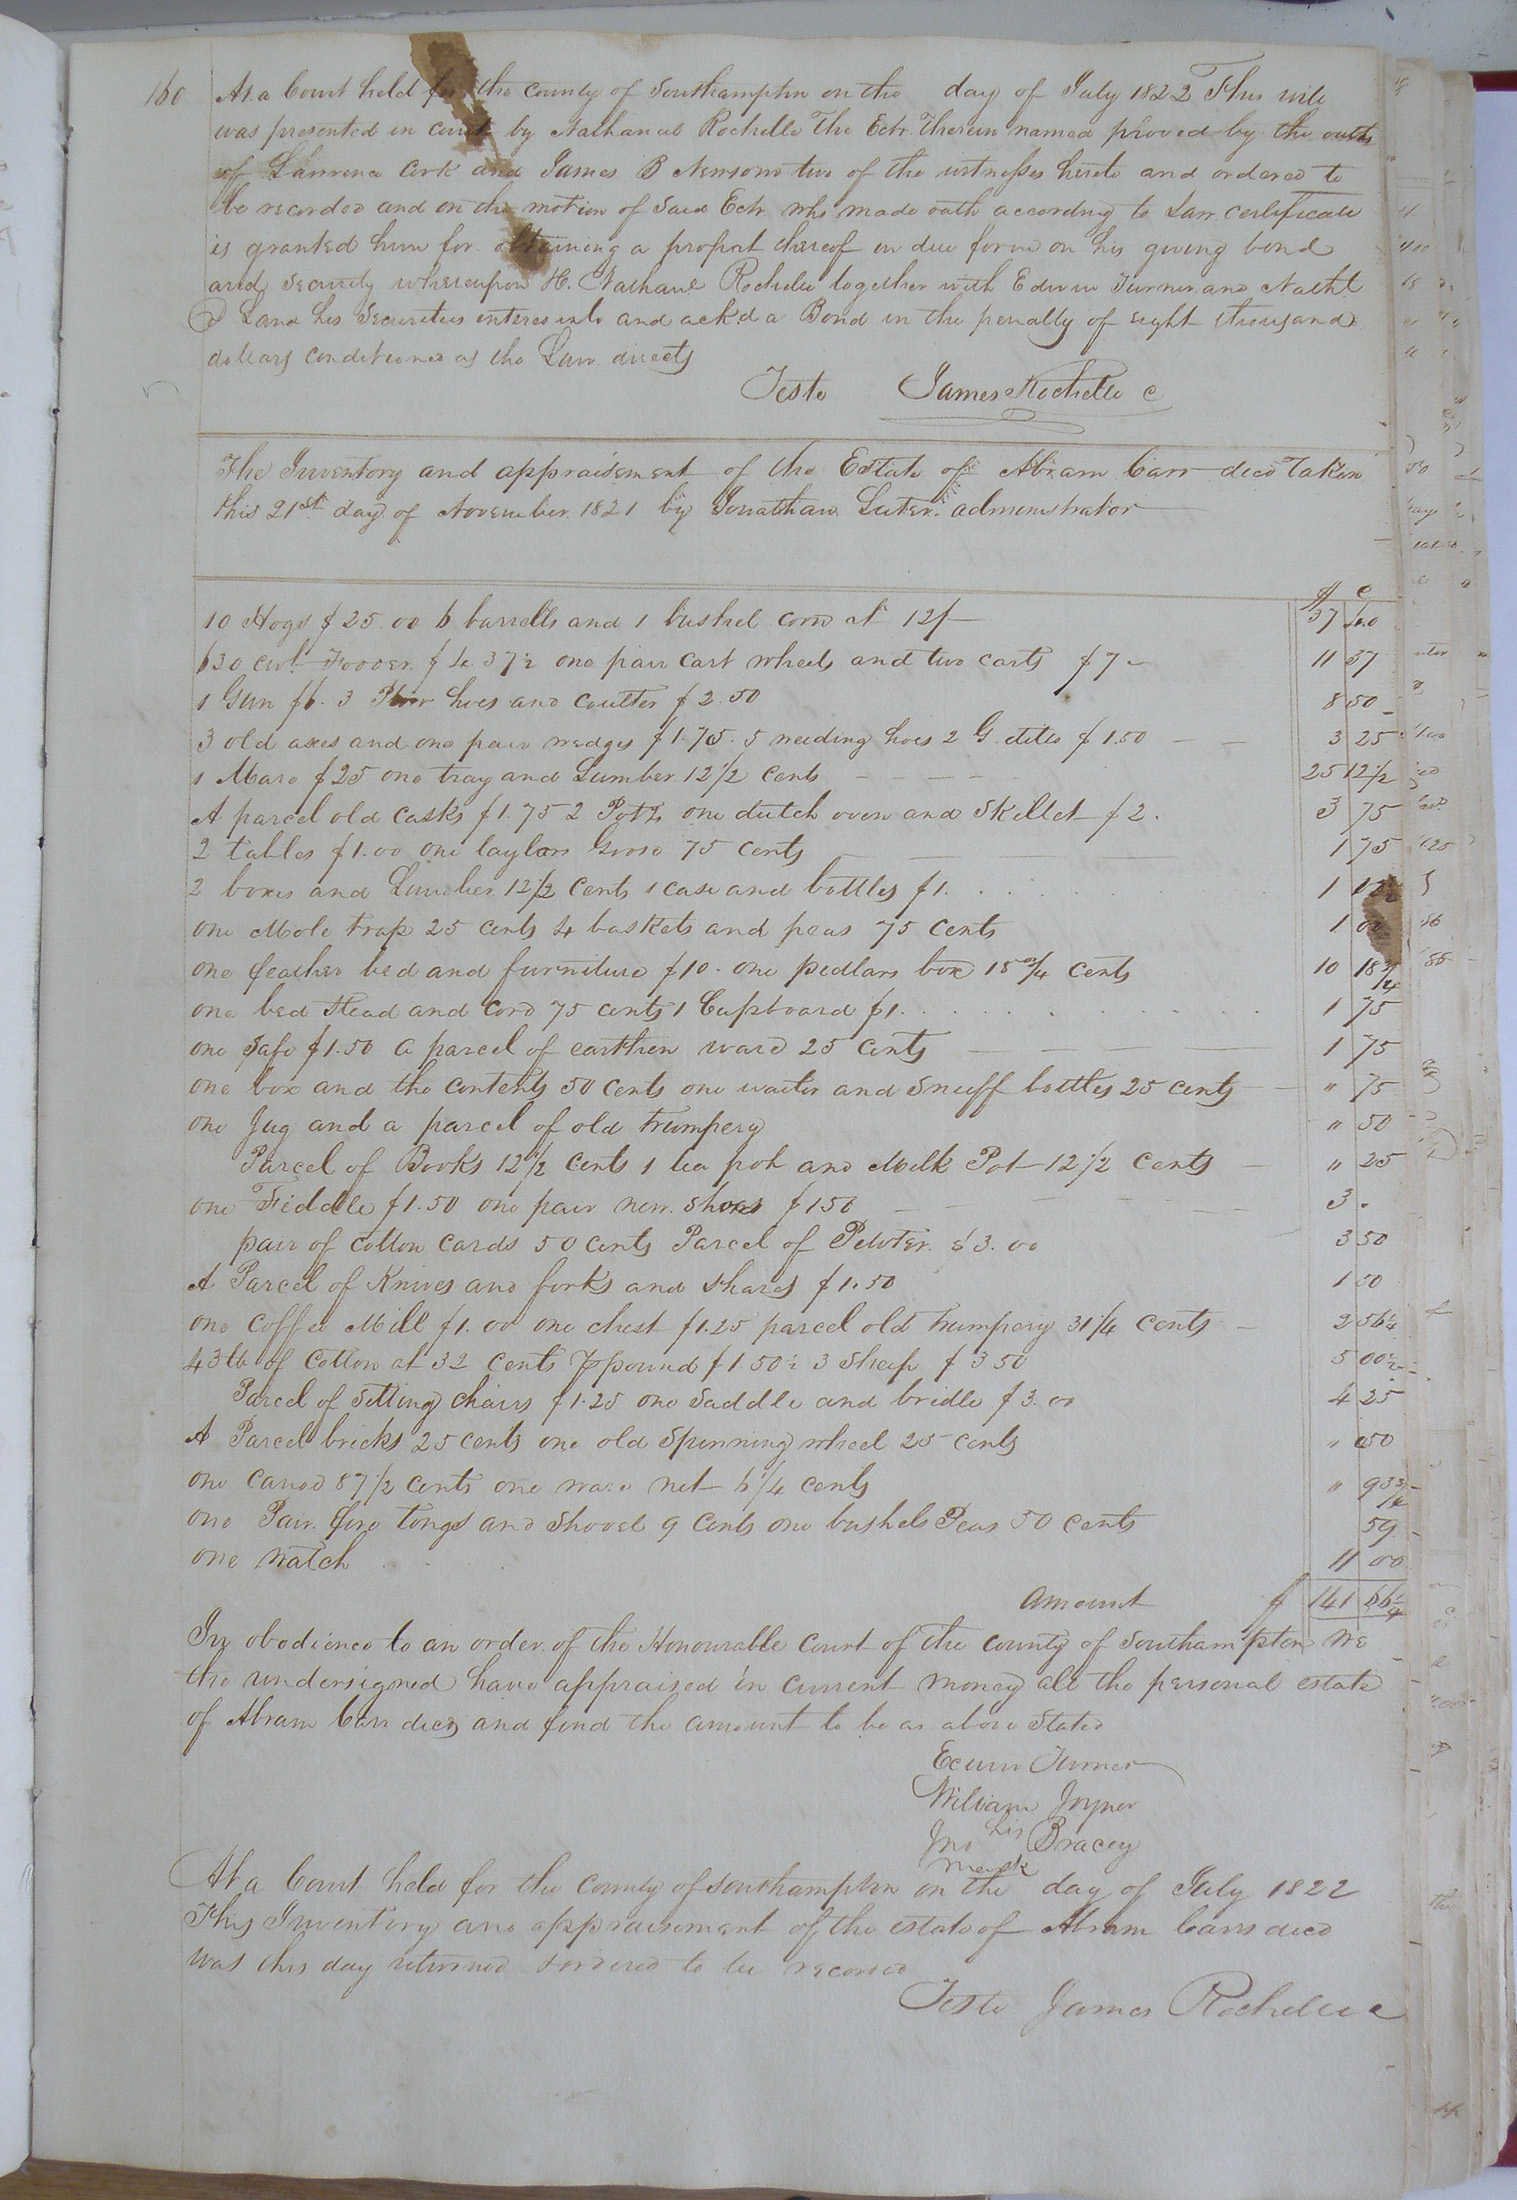 160
At a Court held for the County of Southampton on the day of July 1822 This will
was presented in court by Nathaniel Rochelle The Exr. Therein named proved by the oaths
of Lawrence Cook and James B Newsom two of the witnesses hereto and ordered to
be recorded and on the motion of said Exr. who made oath according to Law certificate
is granted him for obtaining a probat thereof in due form on his giving bond
and security whereupon H. Nathanl Rochelle together with Edwin Turner and Nathl
Land his Securities entered into and ackd a Bond in the penalty of eight thousand
dollars conditioned as the Law directs
Teste James Rochelle C
The Inventory and appraisement of the Estate of Abram Carr decd Taken
this 21st day of November 1821 by Jonathan Luter administrator
$ C
10 Hogs $25.00 6 barrells and 1 bushel corn at 12/ 37 40
630 cwt Fodder $4.37½ one pair cart wheels and two carts $7 11 37
1 Gun $6. 3 Plow hoes and Coulter $2.50 8 50
3 old axes and one pair wedges $1.75. 5 weeding hoes 2 G. ditto $1.50 3 25
1 Mare $25 one tray and Lumber 12½ cents 25 12½
A parcel old casks $1.75 2 Potts one dutch oven and Skillet $2. 3 75
2 tables $1.00 one taylors Goose 75 cents 1 75
2 boxes and Lumber 12½ cents 1 case and bottles $1. 1 12½
one Mole trap 25 cents 4 baskets and peas 75 cents 1 00
one feather bed and furniture $10. one pedlars box 18¾ cents 10 18¾
one bed Stead and Cord 75 cents 1 Cupboard $1. 1 75
one Safe $1.50 a parcel of earthen ward 25 cents 1 75
one box and the contents 50 cents one waiter and Snuff bottles 25 cents " 75
one Jug and a parcel of old trumpery " 50
Parcel of Books 12½ cents 1 tea pot and Milk Pot 12½ cents " 25
one Fiddle $1.50 one pair new shoes $150 3 .
pair of cotton cards 50 cents Parcel of Pewter $3.00 3 50
A Parcel of Knives and forks and shares $1.50 1 50
one Coffee Mill $1.00 one chest $1.25 parcel old trumpery 31¼ cents 2 56¼
43 lb of Cotton at 3½ cents ⅌ pound $1 50½ 3 Sheep $3 50 5 00½
Parcel of Setting chairs $1.25 one Saddle and bridle $3.00 4 25
A Parcel bricks 25 cents one old Spinning wheel 25 cents " 50
one 87½ cents one net 6¼ cents " 93¾
one Pair fire Tongs and Shovel 9 Cents one bushels Peas 50 cents 59
one watch 11 00
Amount $ 141 66¼
In obedience to an order of the Honourable Court of the County of Southampton we
the undersigned have appraised in current money all the personal estate
of Abram Carr decd and find the amount to be as above Stated
Edwin Turner
William Joyner
Jno his Bracey
mark
At a Court held for the County of Southampton on the day of July 1822
This Inventory and appraisement of the estate of Abram Carrs decd
was this day returned & ordered to be recorded
Teste James Rochelle C